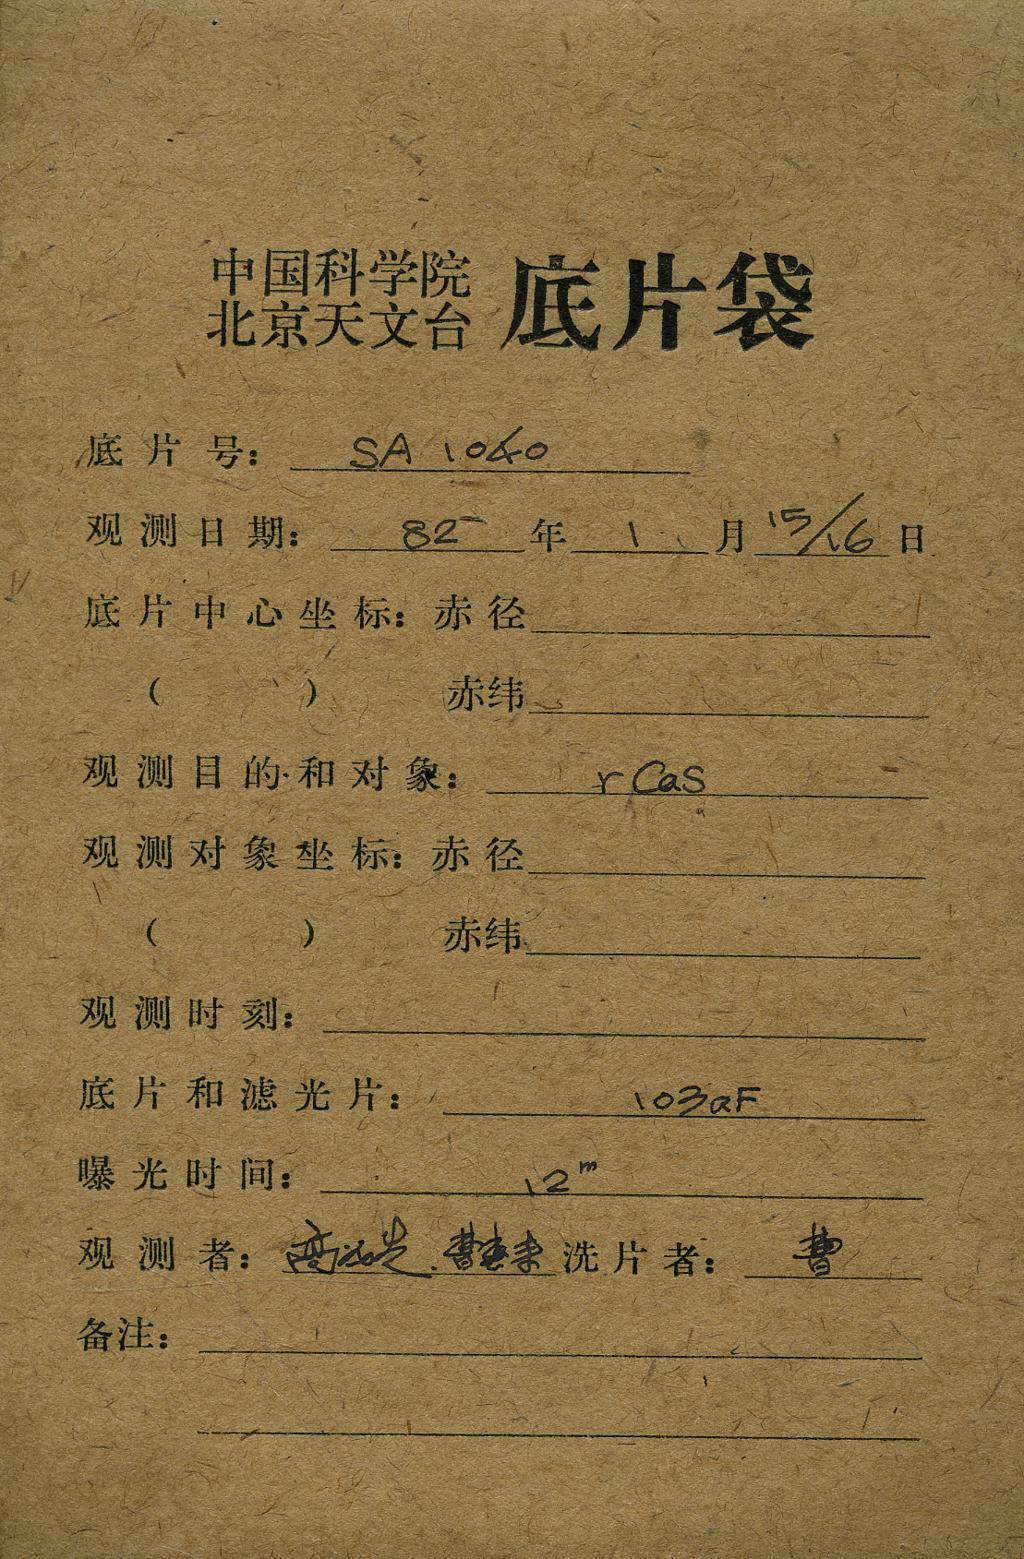 中国科学院
北京天文台 底片袋
底片号： SA 1040
观测日期： 82 年 1 月 15/16 日
底片中心坐标：赤径
（ ） 赤纬
观测目的和对象： r Cas
观测对象坐标：赤径
（ ） 赤纬
观测时刻：
底片和滤光片： 103aF
曝光时间： 12m
观测者： 高 曹 洗片者： 曹
备注：